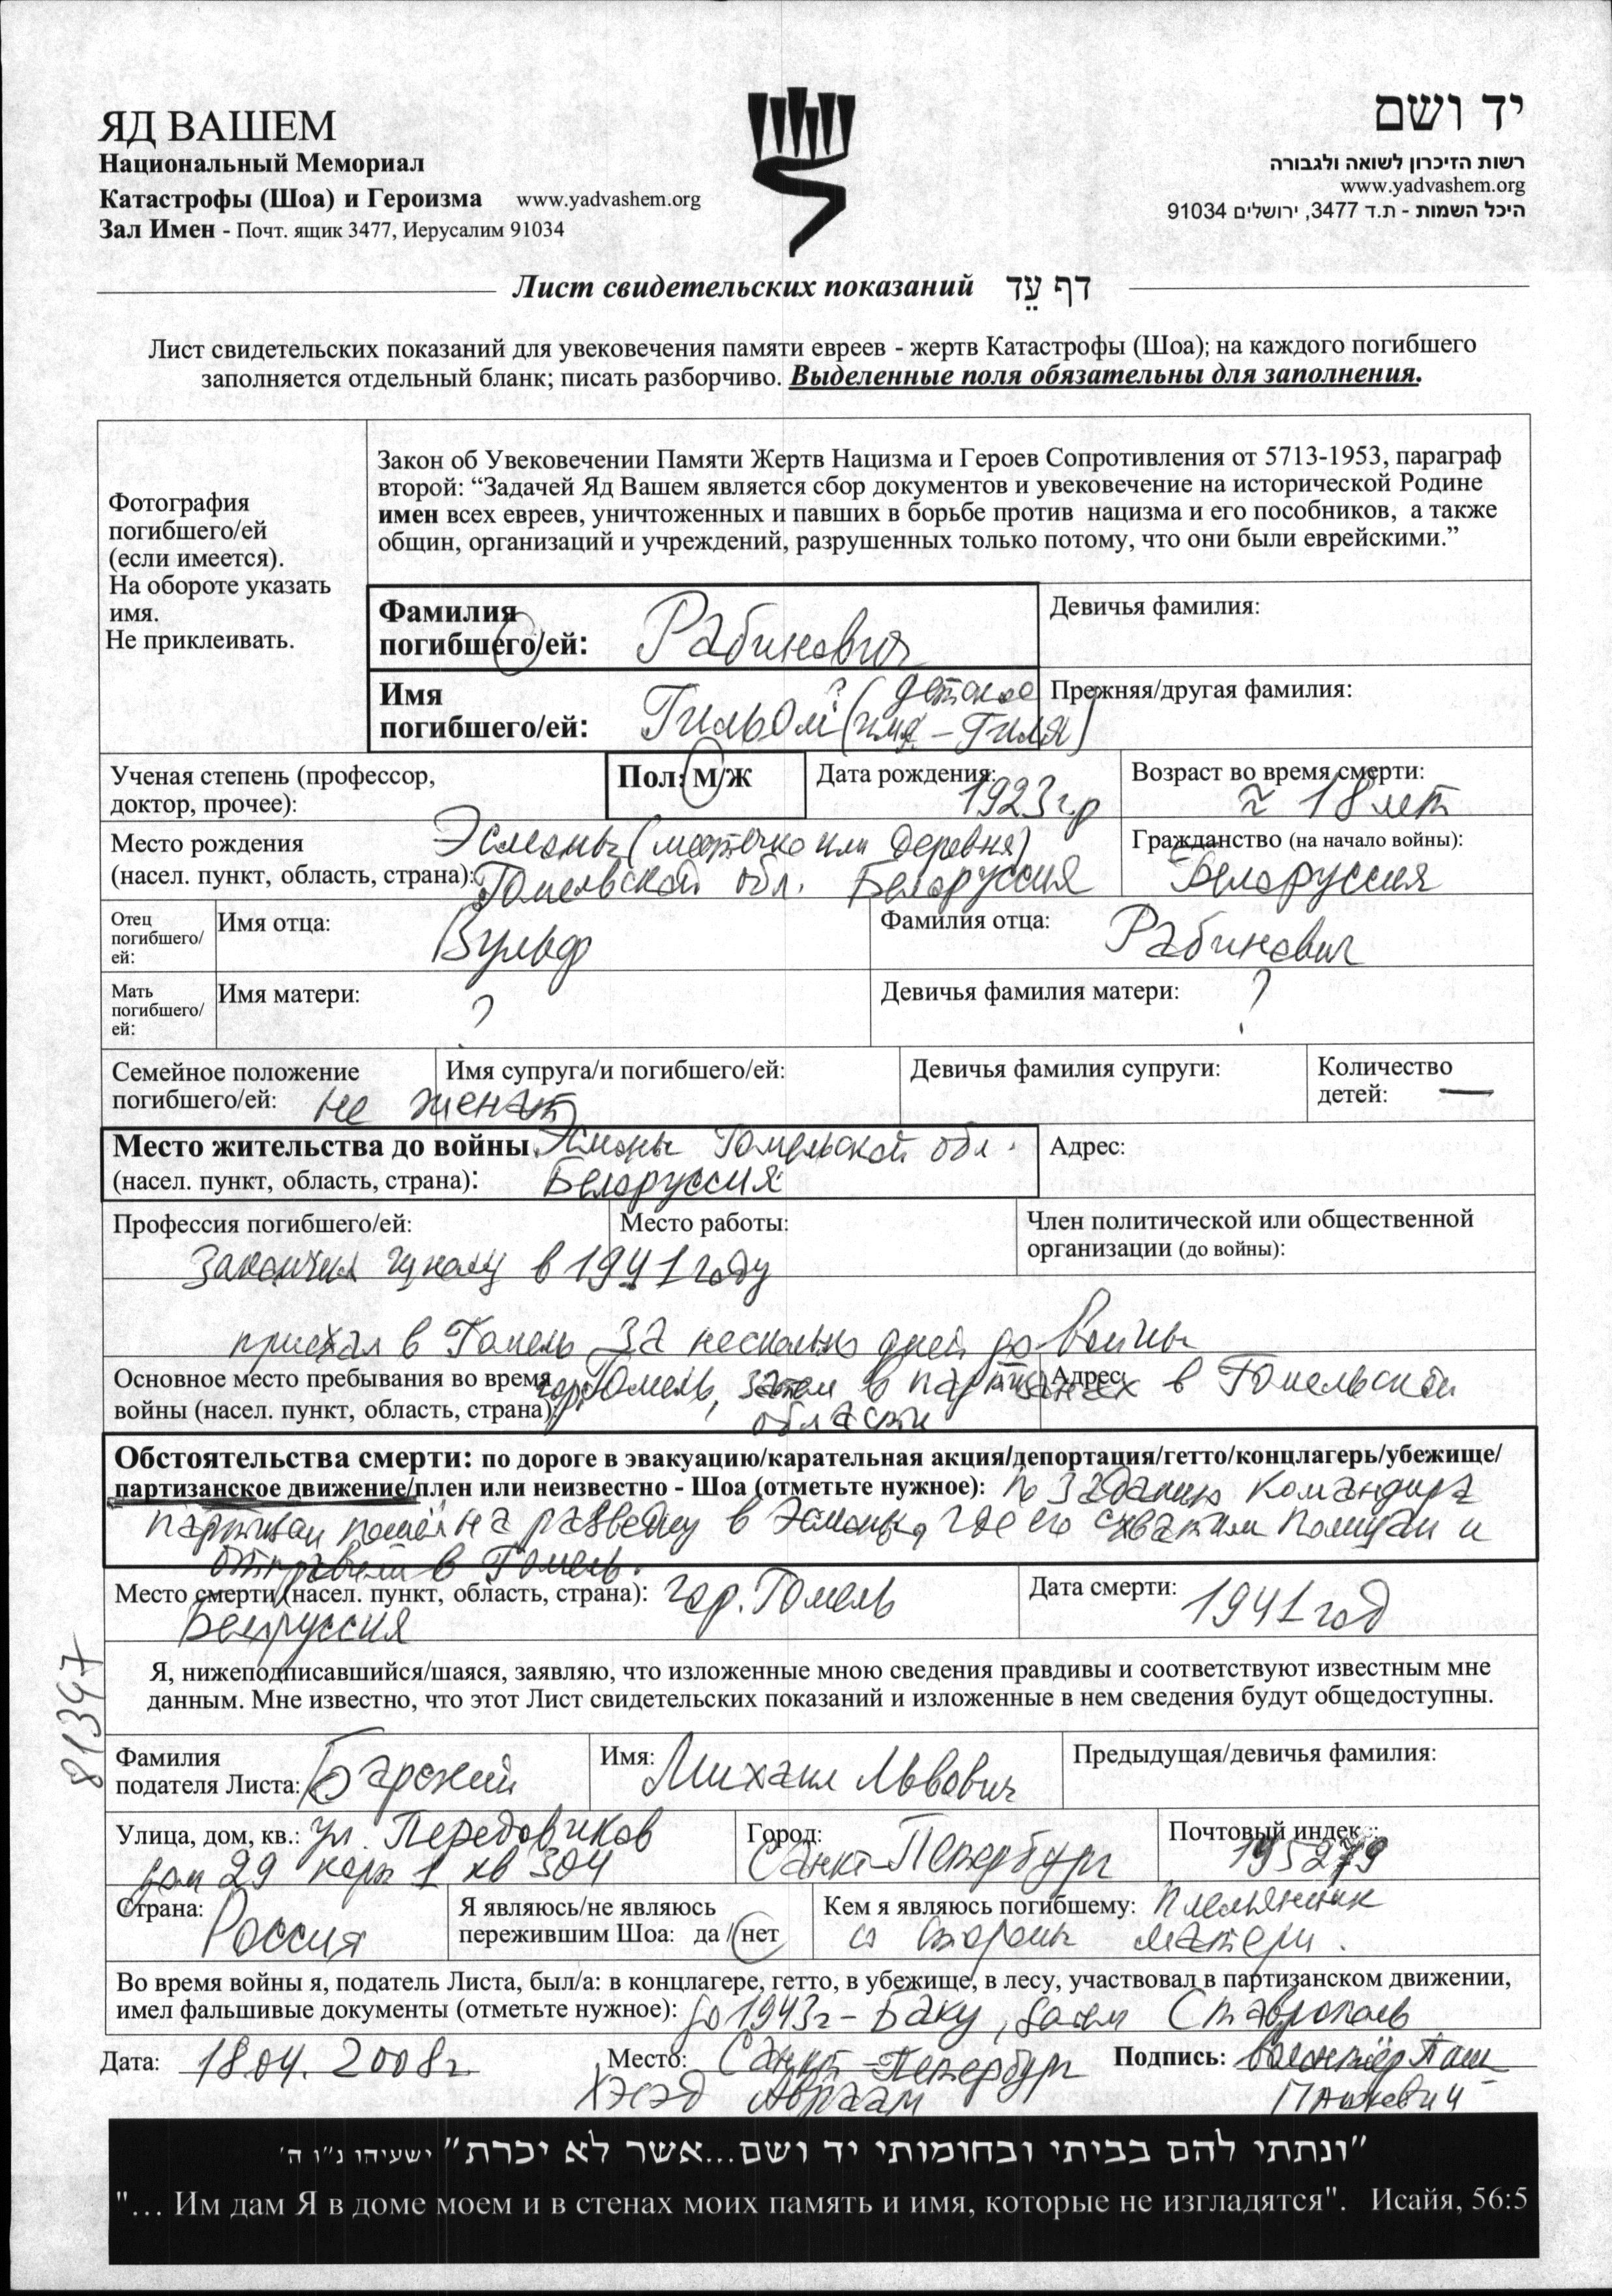 ЯД ВАШЕМ
Национальный Мемориал
Катастрофы (Шоа) и Героизма www.yadvashem.org
Зал Имен - Почт. ящик 3477, Иерусалим 91034
יד ושם
רשות הזיכרון לשואה ולגבורה
www.yadvashem.org
היכל השמות - ת.ד 3477, ירושלים 91034
Лист свидетельских показаний דף עֵד
Лист свидетельских показаний для увековечения памяти евреев - жертв Катастрофы (Шоа); на каждого погибшего
заполняется отдельный бланк; писать разборчиво. Выделенные поля обязательны для заполнения.
Фотография
погибшего/ей
(если имеется).
На обороте указать
имя.
Не приклеивать.
Закон об Увековечении Памяти Жертв Нацизма и Героев Сопротивления от 5713-1953, параграф
второй: “Задачей Яд Вашем является сбор документов и увековечение на исторической Родине
имен всех евреев, уничтоженных и павших в борьбе против нацизма и его пособников, а также
общин, организаций и учреждений, разрушенных только потому, что они были еврейскими.”
Фамилия
погибшего/ей: Рабинович
Девичья фамилия:
Имя
погибшего/ей: (детское
имя - Гиля)
Прежняя/другая фамилия:
Ученая степень (профессор,
доктор, прочее):
Пол: М/Ж
Дата рождения: 1923 г.р
Возраст во время смерти:
≈ 18 лет
Место рождения Эсмоны (местечко или деревня)
(насел. пункт, область, страна): Гомельской обл. Белоруссия
Гражданство (на начало войны):
Белоруссия
Отец
погибшего/
ей:
Имя отца: Вульф
Фамилия отца: Рабинович
Мать
погибшего/
ей:
Имя матери: ?
Девичья фамилия матери: ?
Семейное положение
погибшего/ей: не женат
Имя супруга/и погибшего/ей:
Девичья фамилия супруги:
Количество
детей: —
Место жительства до войны Эсмоны Гомельской обл.
(насел. пункт, область, страна): Белоруссия
Адрес:
Профессия погибшего/ей:
Место работы:
Член политической или общественной
организации (до войны):
Закончил школу в 1941 году
приехал в Гомель за несколько дней до войны
Основное место пребывания во время гор. Гомель, затем в партизанах в Гомельской
войны (насел. пункт, область, страна): области
Адрес:
Обстоятельства смерти: по дороге в эвакуацию/карательная акция/депортация/гетто/концлагерь/убежище/
партизанское движение/плен или неизвестно - Шоа (отметьте нужное): По заданию командира
партизан пошёл на разведку в Эсмоны, где его схватили полицаи и
отправили в Гомель.
Место смерти (насел. пункт, область, страна): гор. Гомель
Белоруссия
Дата смерти: 1941 год
Я, нижеподписавшийся/шаяся, заявляю, что изложенные мною сведения правдивы и соответствуют известным мне
данным. Мне известно, что этот Лист свидетельских показаний и изложенные в нем сведения будут общедоступны.
81397
Фамилия
подателя Листа: Барский
Имя: Михаил Львович
Предыдущая/девичья фамилия:
Улица, дом, кв.: ул. Передовиков
дом 29 корп 1 кв 304
Город:
Санкт-Петербург
Почтовый индек
195279
Страна:
Россия
Я являюсь/не являюсь
пережившим Шоа: да / нет
Кем я являюсь погибшему: племянник
со стороны матери.
Во время войны я, податель Листа, был/а: в концлагере, гетто, в убежище, в лесу, участвовал в партизанском движении,
имел фальшивые документы (отметьте нужное): до 1943г - Баку, затем Ставрополь
Дата: 18.04.2008г.
Место: Санкт-Петербург
Хэсэд Авраам
Подпись: волонтёр
"ונתתי להם בביתי ובחומותי יד ושם...אשר לא יכרת" ישעיהו נ"ו ה'
"... Им дам Я в доме моем и в стенах моих память и имя, которые не изгладятся". Исайя, 56:5